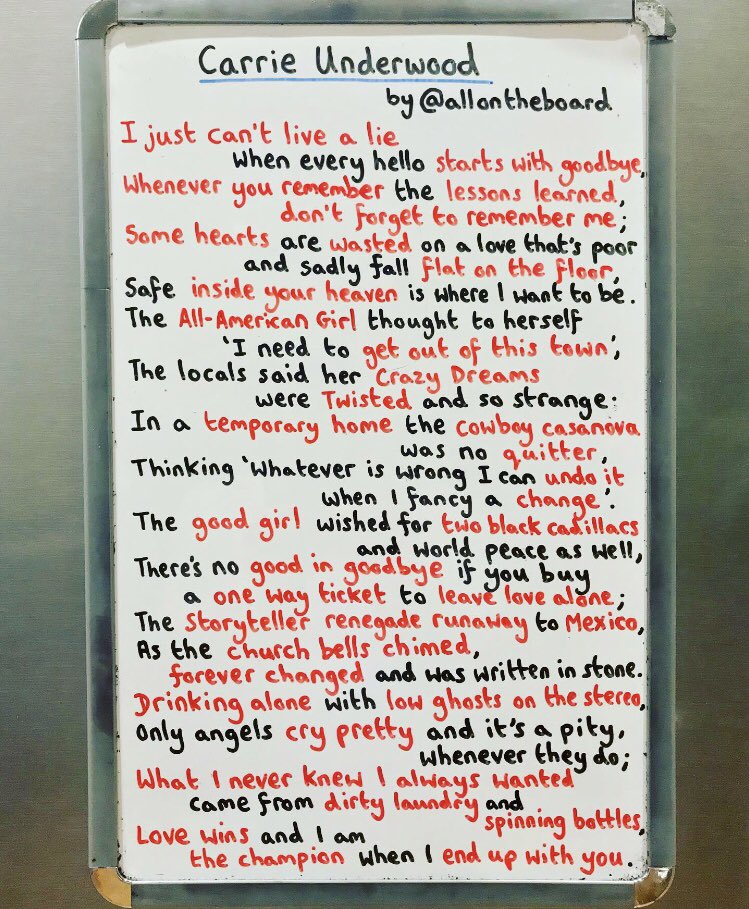 Carrie Underwood
by @allontheboard
I just can't live a lie
when every hello starts with goodbye,
Whenever you remember the lessons learned,
don't forget to remember me;
Some hearts are wasted on a love that's poor
and sadly fall flat on the floor,
Safe inside your heaven is where I want to be.
The All-American Girl thought to herself
'I need to get out of this town',
The locals said her Crazy Dreams
were Twisted and so strange:
In a temporary home the cowboy casanova
was no quitter,
Thinking 'Whatever is wrong I can undo it
when I fancy a change'.
The good girl wished for two black cadillacs
and world peace as well,
There's no good in goodbye if you buy
a one way ticket to leave love alone;
The storyteller renegade runaway to Mexico,
As the church bells chimed,
forever changed and was written in stone.
Drinking alone with low ghosts on the stereo,
Only angels cry pretty and it's a pity,
whenever they do;
What I never knew I always wanted
came from dirty laundry and
spinning bottles,
Love wins and I am
the champion when I end up with you.